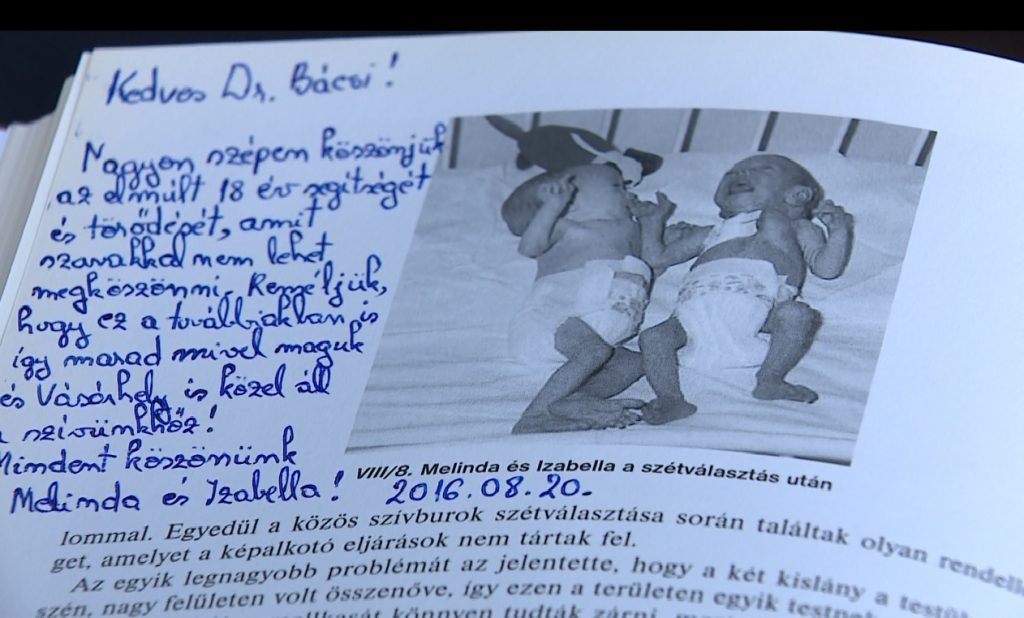 Kedves Dr. Bácsi!
Nagyon szépen köszönjük
az elmúlt 18 év segítségét
és törődését, amit
szavakkal nem lehet
megköszönni. Reméljük,
hogy ez a továbbiakban is
így marad mivel maguk
és Vásárhely is közel áll
a szívünkhöz!
Mindent köszönünk
Melinda és Izabella!
VIII/8. Melinda és Izabella a szétválasztás után
2016.08.20.
lommal. Egyedül a közös szívburok szétválasztása során találtak olyan
get, amelyet a képalkotó eljárások nem tártak fel.
Az egyik legnagyobb problémát az jelentette, hogy a két kislány a
szén, nagy felületen volt összenőve, így ezen a területen egyik
könnyen tudták zárni,